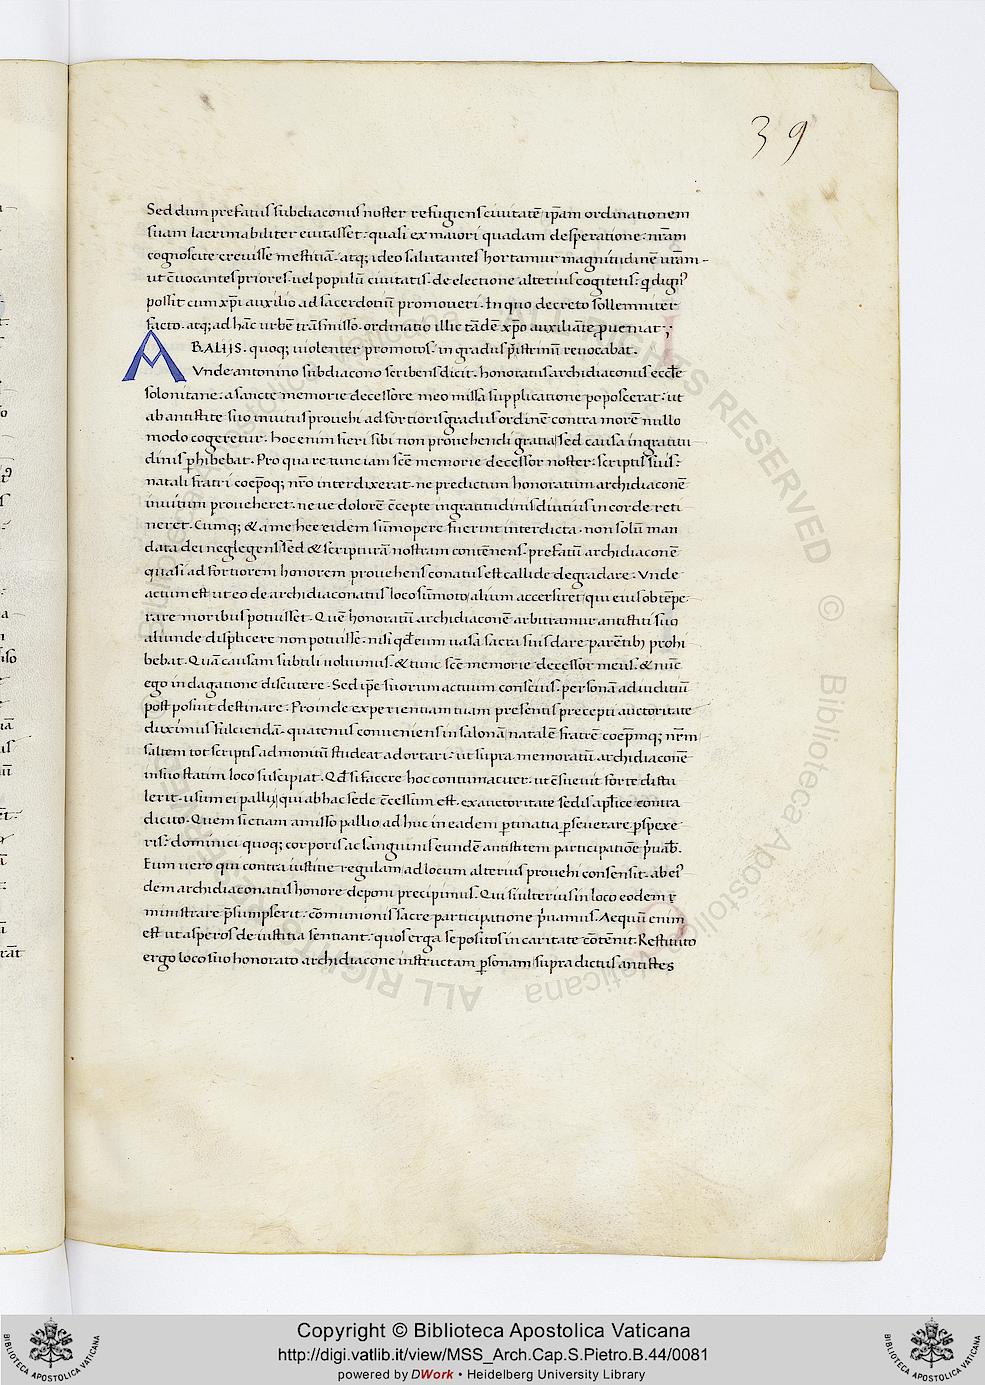 39
Sed dum prefatus subdiaconus noster refugiens ciuitatē ip̄am ordinationem
suam lacrimabiliter euitasset: quasi ex maiori quadam desperatione. nr̄am
cognoscite creuisse mestitiā. atq; ideo salutantes hortamur magnitudinē uram
ut c̄uocantes priores. uel populū ciuitatis. de electione alterius cogitetis: q dignꝰ
possit cum xp̄i auxilio ad sacerdotiū promoueri. In quo decreto sollemniter
facto. atq; ad hāc urbē trāsmisso. ordinatio illic tādē xp̄o auxiliāte ꝓueniat;
ABALIIS. quoq; uiolenter promotos. in gradus p̄istrinū reuocabat.
Vnde antonino subdiacono scribens dicit. honoratus archidiaconus eccl̄e
solonitane: a sancte memorie decessore meo missa supplicatione poposcerat: ut
ab antistite suo inuitus prouehi ad fortioris gradus ordinē contra morē nullo
modo cogeretur: hoc enim fieri sibi non prouehendi gratia sed causa ingratitu
dinis ꝑhibebat. Pro qua re tunc iam scē memorie decessor noster: scriptis suis:
natali fratri coep̄oq; nr̄o interdixerat. ne predictum honoratum archidiaconē
inuitum proueheret. ne ue dolorē c̄cepte ingratitudinis diutius in corde reti
neret. Cumq; & a me hec eidem sūmopere fuerint interdicta. non solū man
data dei neglegens sed & scripturā nostram contēnens. prefatū archidiaconē
quasi ad fortiorem honorem prouehens conatus est callide degradare. Vnde
actum est ut eo de archidiaconatus loco sūmoto alium accersiret qui eius obtēpe
rare moribus potuisset. Quē honoratū archidiaconē arbitramur antistiti suo
aliunde displicere non potuisse. nisi qđ eum uasa sacra suis dare parētib; prohi
bebat. Quā causam subtili uoluimus. & tunc scē memorie decessor meus. & nūc
ego indagatione discutere. Sed ip̄e suorum actuum conscius. personā ad iuditiū
post posuit destinare. Proinde experientiam tuam presentis precepti auctoritate
duximus fulciendā. quatenus conueniens in salonā natalē fratrē coep̄mq; nr̄m
saltem tot scriptis admonitū studeat adortari. ut supra memoratū archidiaconē
in suo statim loco suscipiat. Qđ si facere hoc contumaciter. ut c̄sueuit forte distu
lerit. usum ei pallij qui ab hac sede c̄cessum est. ex auctoritate sedis apl̄ice contra
dicito. Quem si etiam amisso pallio ad huc in eadem ꝑtinatia ꝑseuerare ꝑspexe
ris: dominici quoq; corporis ac sanguinis eundē antistitem participatiōe p̄uab̄.
Eum uero qui contra iustitie regulam ad locum alterius prouehi consensit. ab eiꝰ
dem archidiaconatus honore deponi precipimus. Qui si ulterius in loco eodem
ministrare p̄sumpserit. cōmunionis sacre participatione p̄uamus. Aequū enim
est ut asperos de iustitia sentiant. quos erga se positos in caritate cōtēnit. Restituto
ergo loco suo honorato archidiacone instructam ꝑsonam supra dictus antistes
ALL RIGHTS RESERVED © Biblioteca Apostolica Vaticana
Copyright © Biblioteca Apostolica Vaticana
http://digi.vatlib.it/view/MSS_Arch.Cap.S.Pietro.B.44/0081
powered by DWork • Heidelberg University Library
BIBLIOTECA APOSTOLICA VATICANA
BIBLIOTECA APOSTOLICA VATICANA